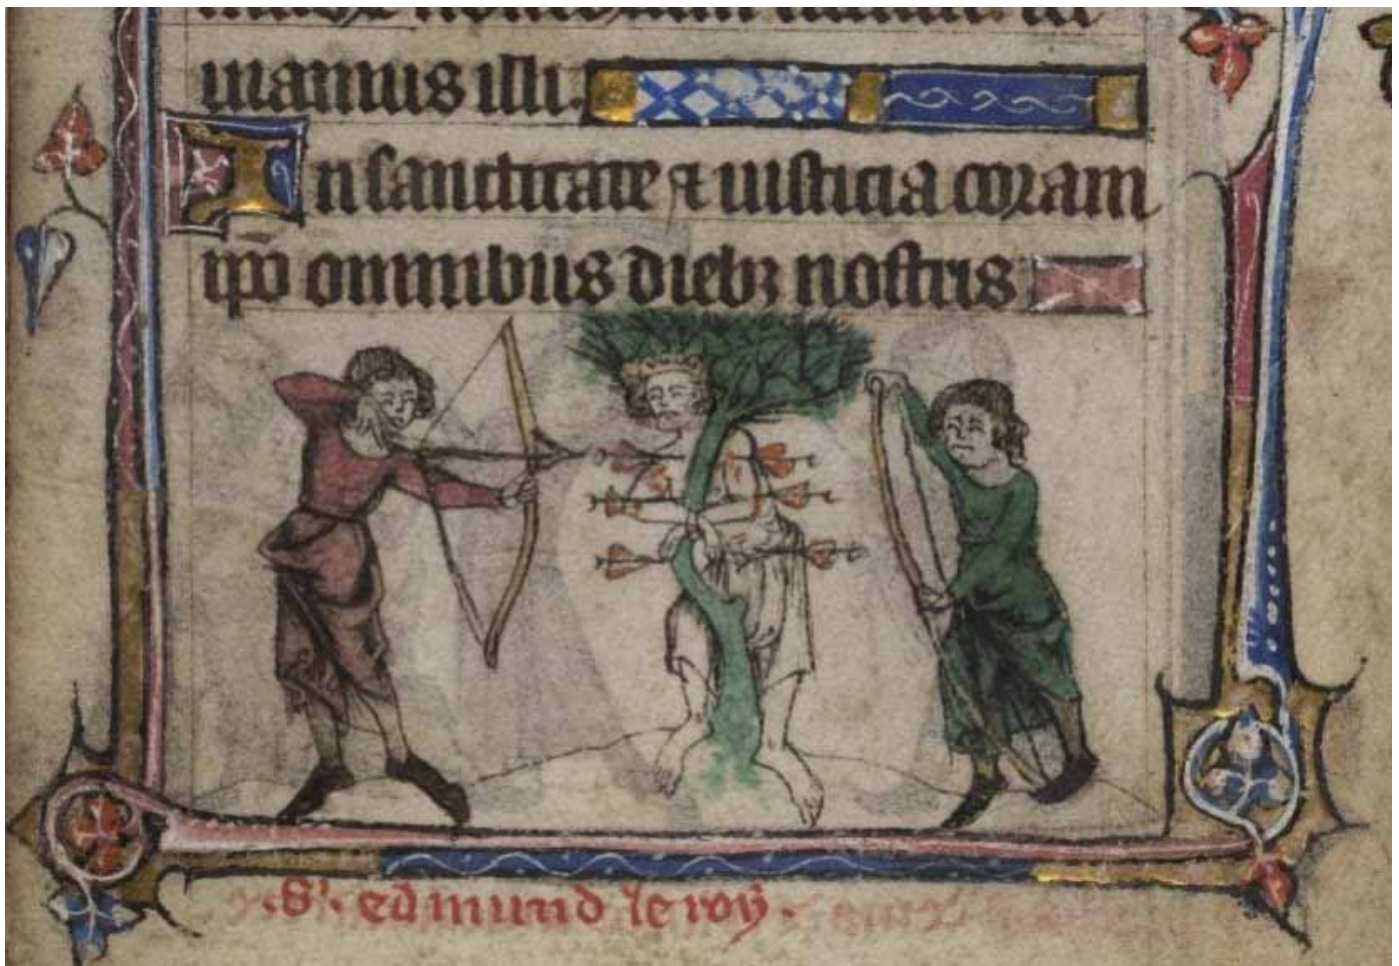 uiamus illi.
In sanctitate ⁊ iusticia coram
ip̄o omnibus diebꝫ nostris
.S'. edmund le roy.